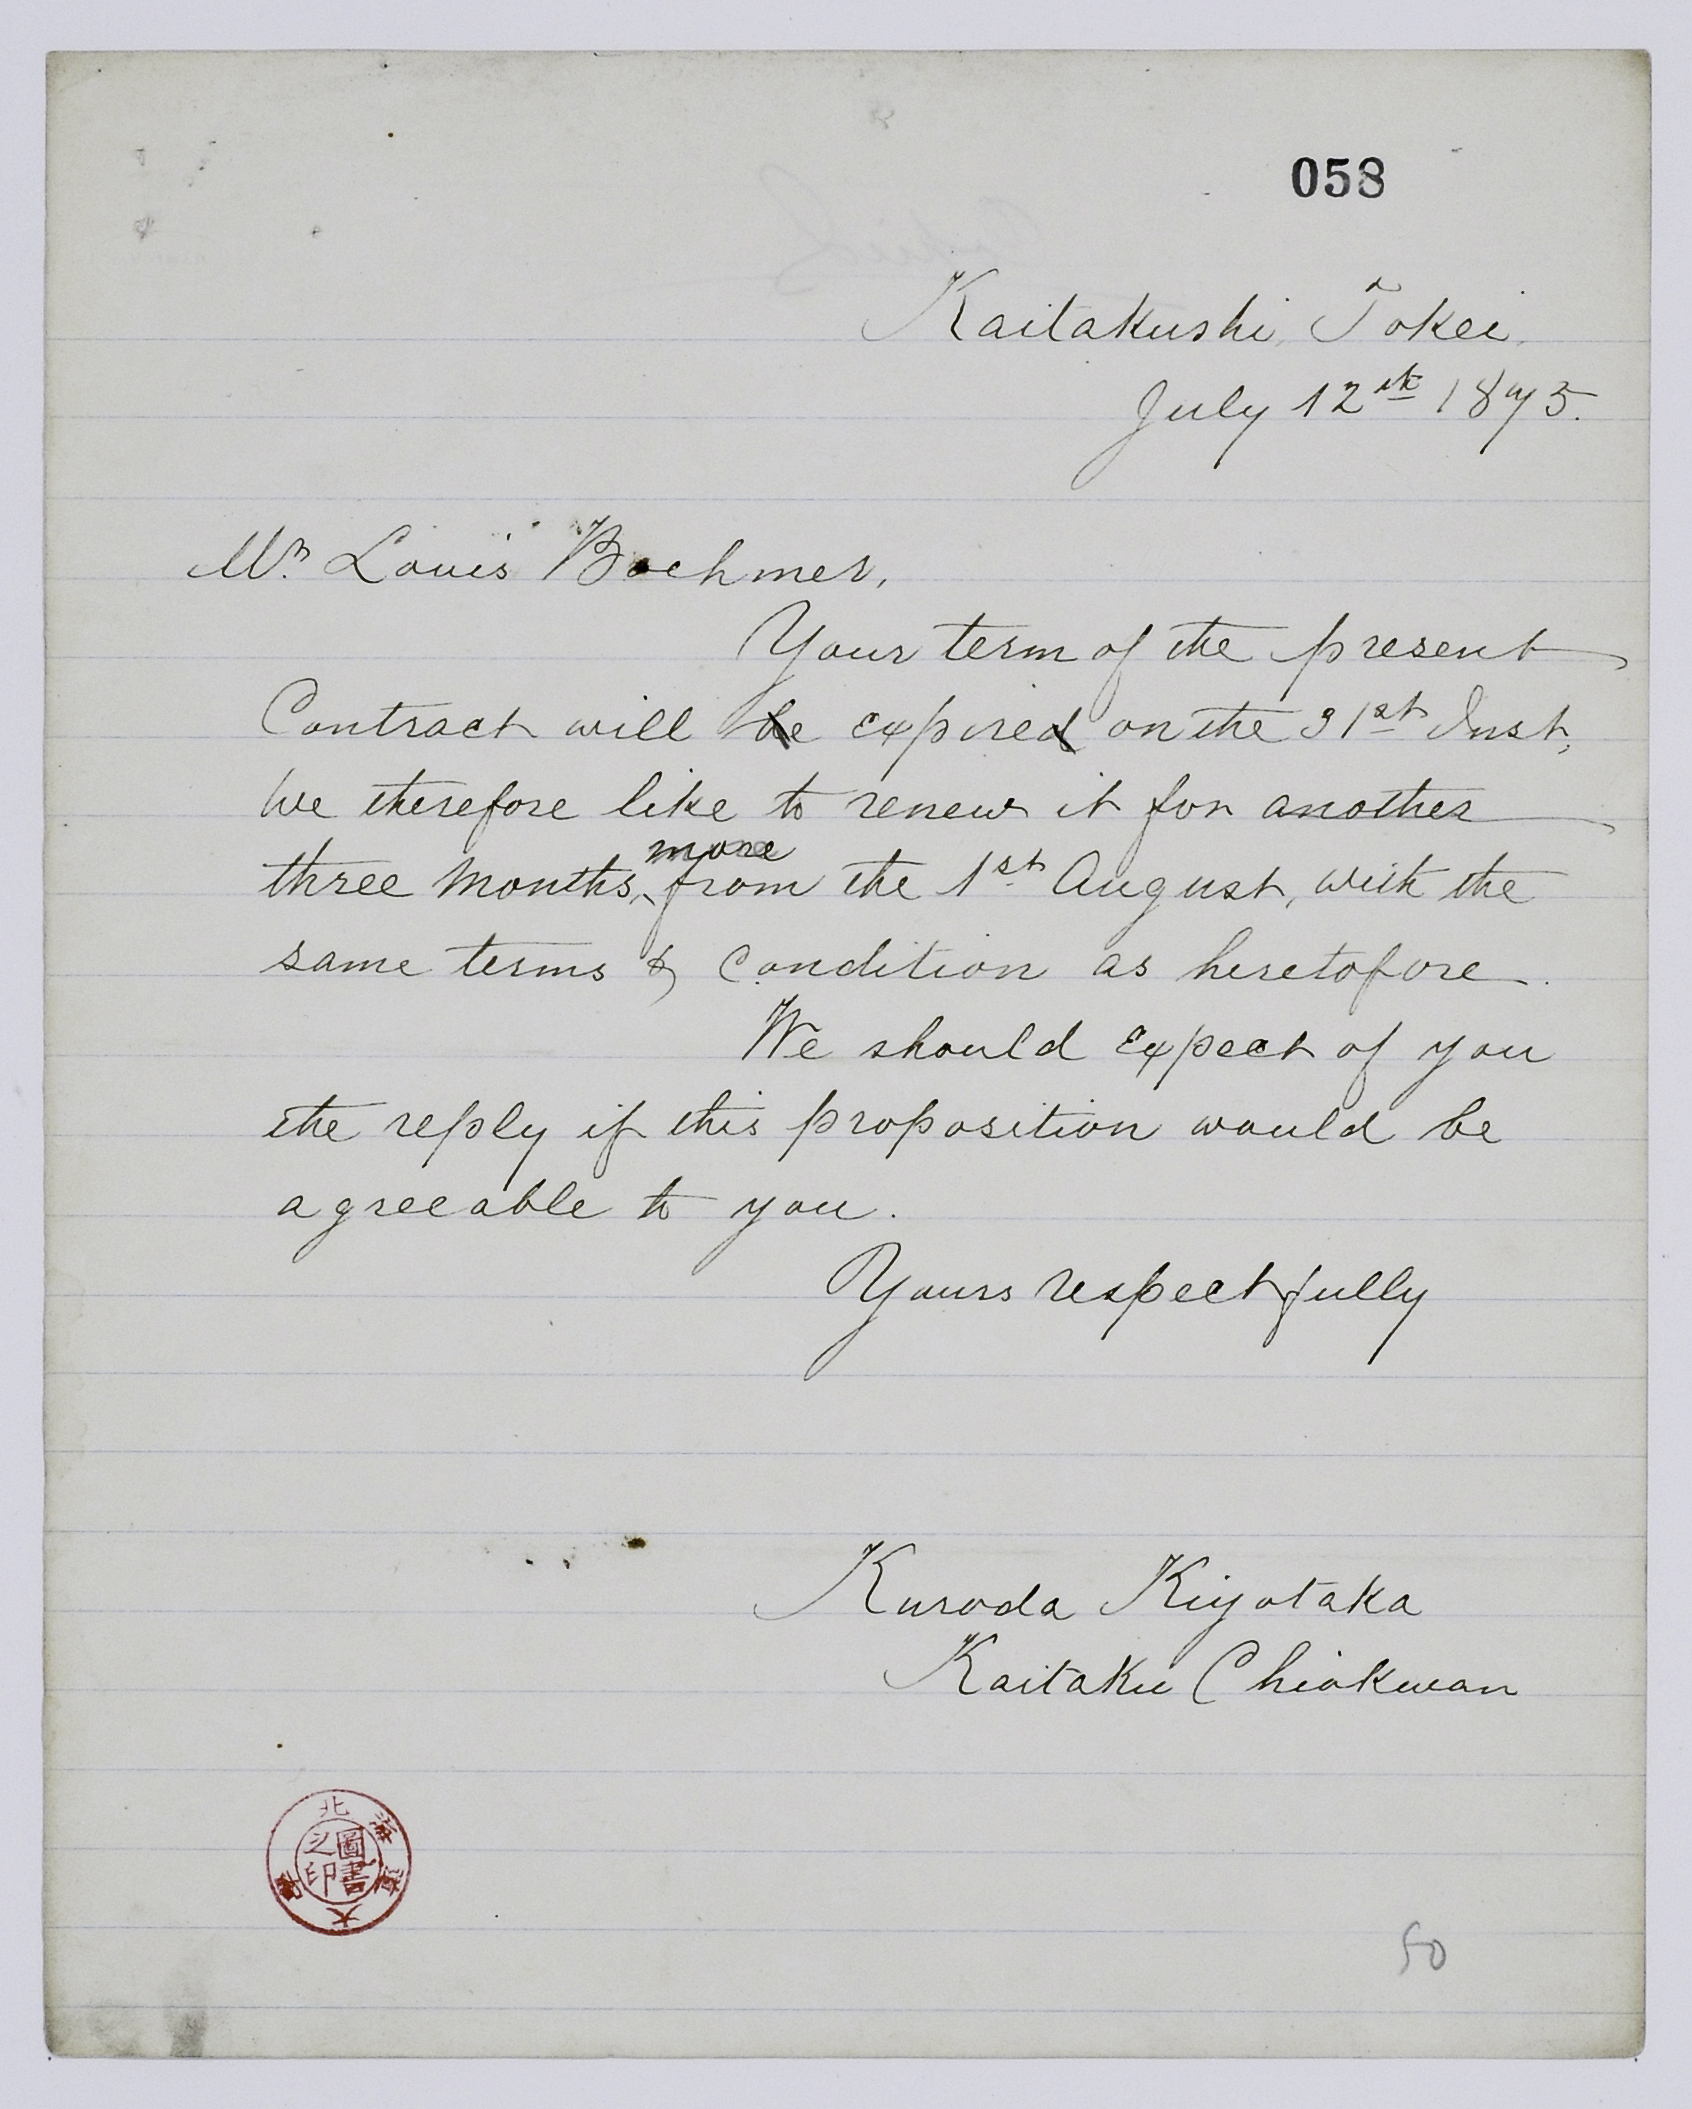 058
Kaitakushi, Tokei,
July 12th 1875.
Mr. Louis Boehmer,
Your term of the present
Contract will be expired on the 31st Inst,
We therefore like to renew it for another
three months, more from the 1st August, with the
same terms & condition as heretofore.
We should expect of you
the reply if this proposition would be
agreeable to you.
Yours respectfully
Kuroda Kiyotaka
Kaitaku Chiokwan
北海道大學
圖書之印
50